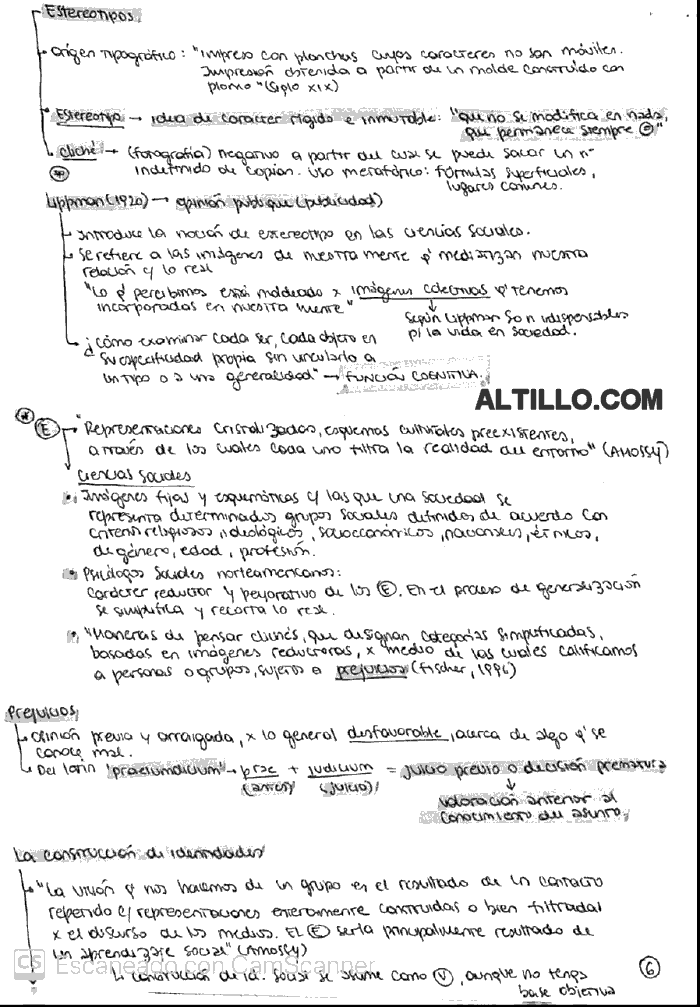 Estereotipos
Origen tipográfico: "Impreso con planchas cuyos caracteres no son móviles.
Impresión obtenida a partir de un molde construido con
plomo" (Siglo XIX)
Estereotipo → idea de carácter rígido e inmutable: "que no se modifica en nada,
que permanece siempre =".
cliché → (fotografía) negativo a partir del cual se puede sacar un nº
indefinido de copias. Uso metafórico: fórmulas superficiales,
lugares comunes.
Lippman (1920) → opinión publique (publicidad)
Introduce la noción de estereotipo en las ciencias sociales.
Se refiere a las imágenes de nuestra mente q' mediatizan nuestra
relación c/ lo real
"Lo q' percibimos está moldeado x imágenes colectivas q' tenemos
incorporadas en nuestra mente"
Según Lippman son indispensables
p/ la vida en sociedad.
¿Cómo examinar cada ser, cada objeto en
su especificidad propia sin vincularlo a
un tipo o a una generalidad" → FUNCIÓN COGNITIVA.
ALTILLO.COM
* E → "Representaciones cristalizadas, esquemas culturales preexistentes,
a través de los cuales cada uno filtra la realidad del entorno" (Amossy)
Ciencias Sociales
Imágenes fijas y esquemáticas c/ las que una sociedad se
representa determinados grupos sociales definidos de acuerdo con
criterios religiosos, ideológicos, socioeconómicos, nacionales, étnicos,
de género, edad, profesión.
Psicólogos Sociales norteamericanos:
carácter reductor y peyorativo de los E. En el proceso de generalización
se simplifica y recorta lo real.
"Maneras de pensar clichés, que designan categorías simplificadas,
basadas en imágenes reductoras, x medio de las cuales calificamos
a personas o grupos, sujetos a prejuicios (Fischer, 1996)
Prejuicios
Opinión previa y arraigada, x lo general desfavorable, acerca de algo q' se
conoce mal.
Del latín 'praeiumdicium' → prae + judicium = juicio previo o decisión prematura
(antes) (juicio)
valoración anterior al
conocimiento del asunto.
La construcción de identidades
"La visión q' nos hacemos de un grupo es el resultado de un contacto
repetido c/ representaciones enteramente construidas o bien filtradas
x el discurso de los medios. El E sería principalmente resultado de
un aprendizaje social" (Amossy)
construcción de id. social se asume como V, aunque no tenga
base objetiva
CS Escaneado con CamScanner
6